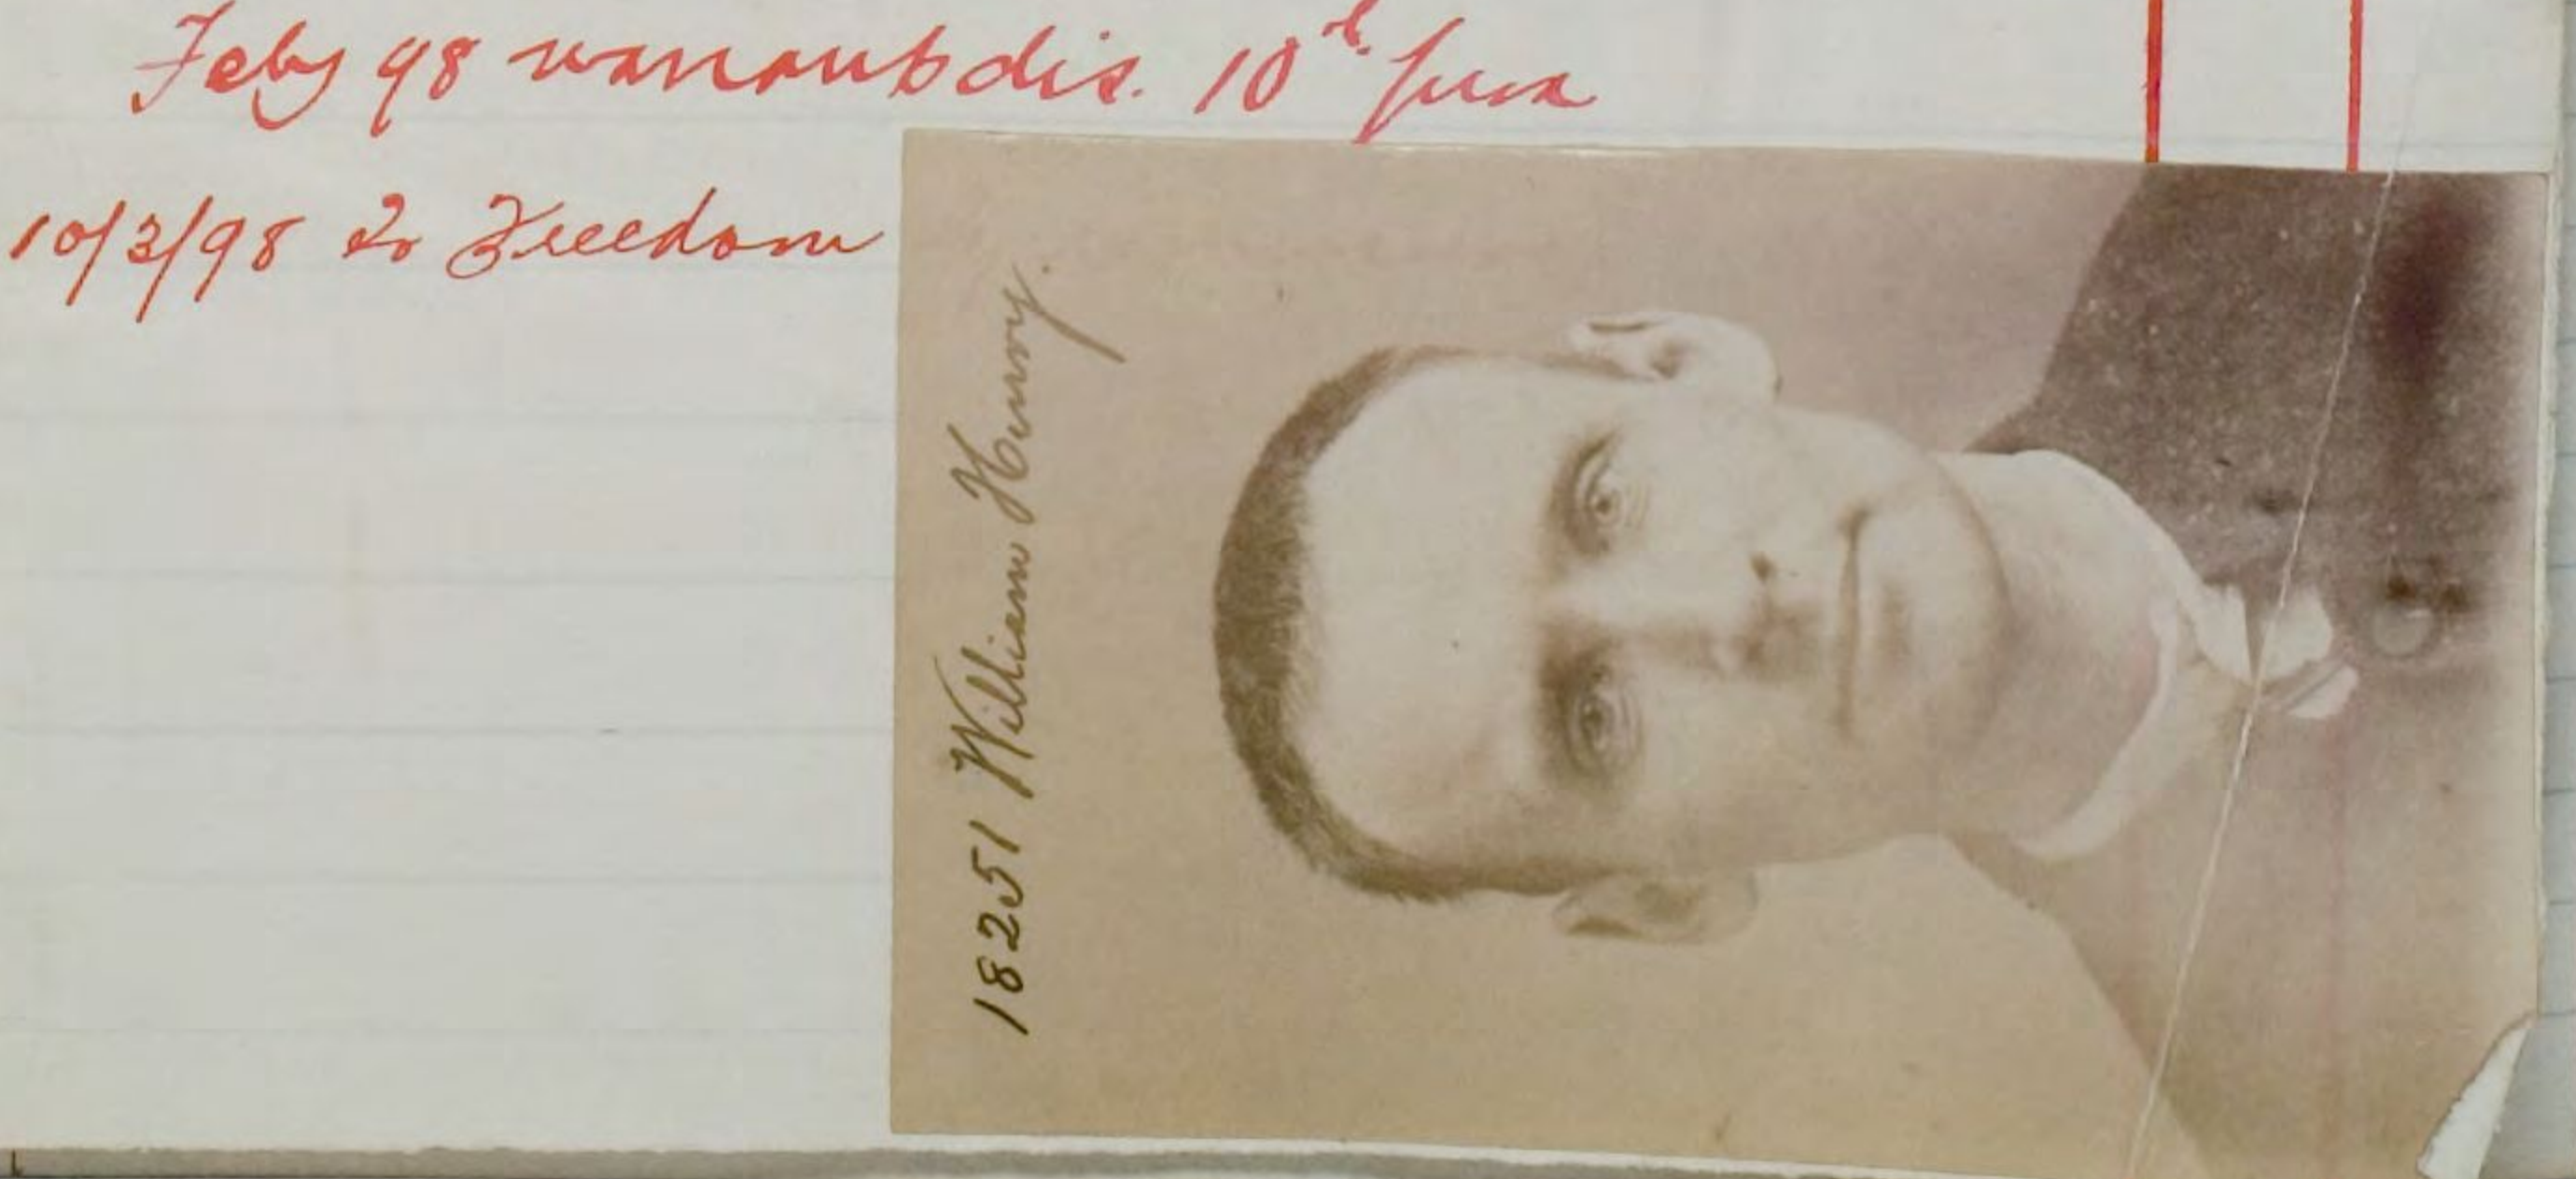 Feby 98 warrant dis. 10th prox
10/3/98 To Freedom
18251 William Henry.